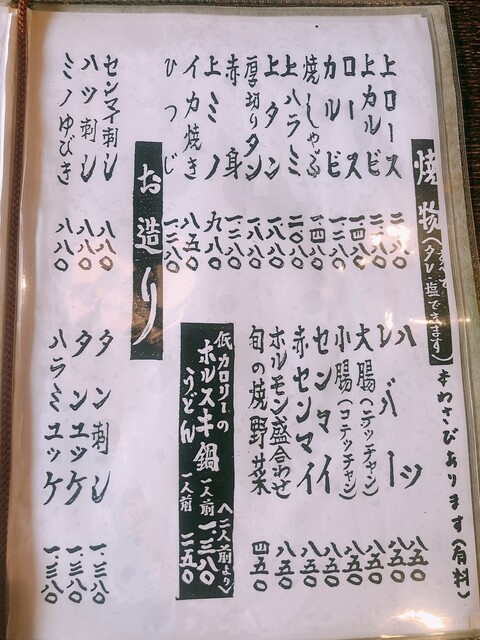 焼物(すべてタレ・塩できます)
本わさびあります(有料)
上ロース
上カルビ
ロース
カルビ 一.二八〇
焼しゃぶ
上ハラミ 二.〇八〇
上タン 一.八八〇
厚切りタン 一.八八〇
赤身 一.二八〇
上ミノ 九八〇
イカ焼き 八五〇
ひつじ 一.二八〇
ハツ 八五〇
レバー 八五〇
大腸(テッチャン) 八五〇
小腸(コテッチャン) 八五〇
センマイ 八五〇
赤センマイ 八五〇
ホルモン盛合わせ 八五〇
旬の焼野菜 四五〇
低カロリーの
ホルスキ鍋 一人前 一.三八〇 (二人前より)
うどん 一人前 二五〇
お造り
センマイ刺し 八八〇
ハツ刺し 八八〇
ミノゆびき 八八〇
タン刺し 一.三八〇
タンユッケ 一.三八〇
ハラミユッケ 一.三八〇